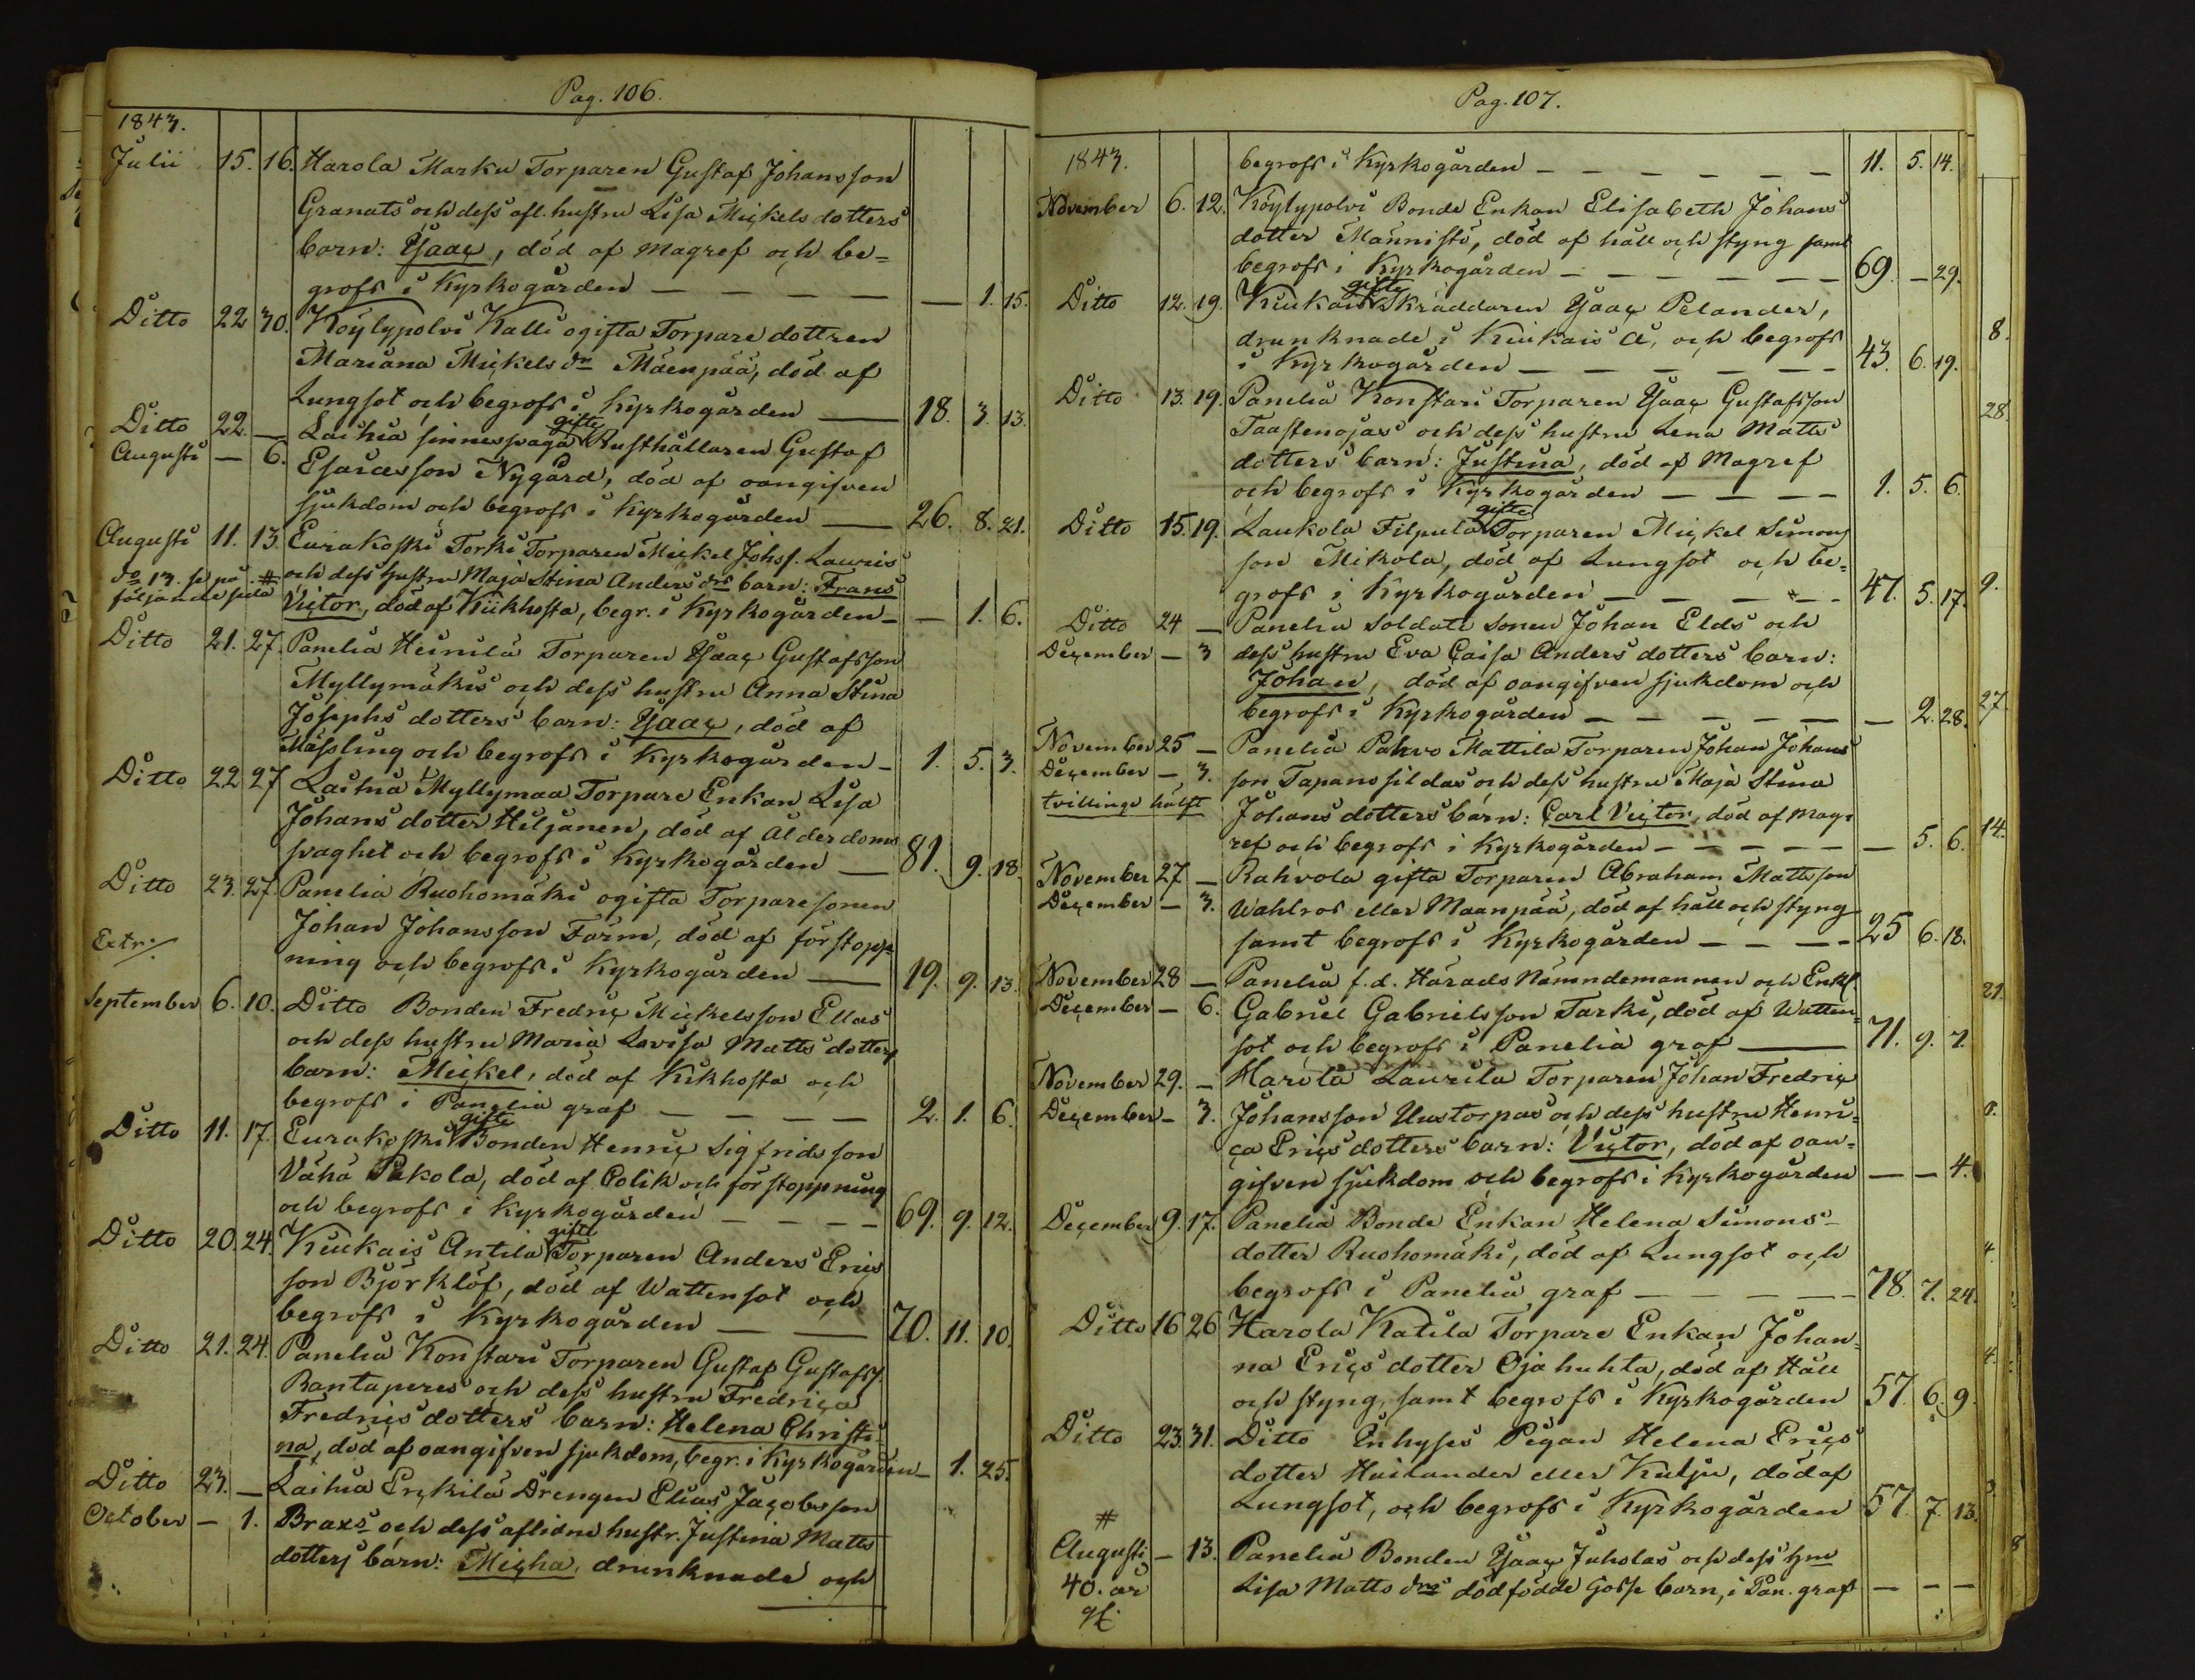 Pag. 106.
1843.
Julii 15. 16. Harola Marku Torparen Gustaf Johansson
Granats och dess afl. hustru Lisa Mickels dotters
barn: Isaac, död af Magref och be=
grofs i Kyrkogården — — — — — 1. 15.
Ditto 22 30. Köylypolvi Kalli ogifta Torpare dottren
Mariana Mickels dr Mäenpää, död af
Lungsot och begrofs i Kyrkogården — 18. 3. 13.
Ditto 22. — Laihia sinnessvaga gifte Rusthållaren Gustaf
Augusti — 6. Esaiæsson Nygård, död af oangifven
sjukdom och begrofs i Kyrkogården — 26. 8. 21.
Augusti 11. 13. Eurakoski Torki Torparen Mickel Johss. Lauris
do 13. se på # och dess hustru Maja Stina Anders drs barn: Frans
följande sida Victor, död af Kikhosta, begr. i Kyrkogården — — 1. 6.
Ditto 21. 27. Panelia Heinilä Torparen Isaac Gustafsson
Myllymäkis och dess hustru Anna Stina
Josephs dotters barn: Isaac, död af
Mässling och begrofs i Kyrkogården — 1. 5. 3.
Ditto 22 27 Laihia Myllymaa Torpare Enkan Lisa
Johans dotter Hiljanen, död af Ålderdoms
svaghet och begrofs i Kyrkogården — 81. 9. 18.
Ditto 23. 27. Panelia Ruohomäki ogifta Torparesonen
Johan Johansson Farm, död af förstopp=
Extr:
ning och begrofs i Kyrkogården — 19. 9. 13.
September 6. 10. Ditto Bonden Fredric Mickelsson Ellas
och dess hustru Maria Lovisa Matts dotters
barn: Mickel, död af Kikhosta och
begrofs i Panelia graf — — — — 2. 1. 6.
Ditto 11. 17. Eurakoski gifte Bonden Henric Sigfridsson
Vähä Pakola, död af Colik och förstoppning
och begrofs i Kyrkogården — — — — 69. 9. 12.
Ditto 20. 24. Kiukais Antila gifte Torparen Anders Erics
son Björklöf, död af Wattensot och
begrofs i Kyrkogården — — 70. 11. 10.
Ditto 21. 24. Panelia Konstari Torparen Gustaf Gustafss.
Rantaperes och dess hustru Fredrica
Fredrics dotters barn: Helena Christi=
na, död af oangifven sjukdom, begr. i Kyrkogården — 1. 25.
Ditto 23. — Laihia Erckilä Drengen Elias Jacobsson
October — 1. Braxs och dess aflidne hustr. Justina Matts
dotters barn: Micha, drunknade och
Pag. 107.
1843. begrofs i Kyrkogården — — — — — — 11. 5. 14.
November 6. 12. Köylypolvi Bonde Enkan Elisabeth Johans
dotter Männistö, död af håll och styng samt
begrofs i Kyrkogården — — — — — — 69. — 29.
Ditto 12. 19. Kiukais gifte Skräddaren Isaac Pelander,
drunknade i Kiukais å, och begrofs
i Kyrkogården — — — — — — 43. 6. 19.
Ditto 13. 19. Panelia Konstari Torparen Isaac Gustafsson
Taastenojas och dess hustru Lena Matts
dotters barn: Justina, död af Magref
och begrofs i Kyrkogården — — — — 1. 5. 6.
Ditto 15. 19. Laukola Filpula gifte Torparen Mickel Simons
son Mikola, död af Lungsot och be=
grofs i Kyrkogården — — — — — 47. 5. 17.
Ditto 24 — Panelia Soldate sonen Johan Elds och
December — 3 dess hustru Eva Caisa Anders dotters barn:
Johan, död af oangifven sjukdom och
begrofs i Kyrkogården — — — — — — — 2. 28.
November 25 — Panelia Pahvo Mattila Torparen Johan Johans
December — 3. son Tapanossildas och dess hustru Maja Stina
tvillings hälft Johans dotters barn: Carl Victor, död af Mag=
ref och begrofs i Kyrkogården — — — — — — 5. 6.
November 27 — Rahvola gifta Torparen Abraham Mattsson
December — 3. Wahlros eller Maanpää, död af håll och styng
samt begrofs i Kyrkogården — — — — 25 6. 18.
November 28 — Panelia f. d. Härads Nämndemannen och Enkl.
December — 6. Gabriel Gabrielsson Tarki, död af Watten=
sot och begrofs i Panelia graf — 71. 9. 7.
November 29. — Harola Laurila Torparen Johan Fredric
December — 3. Johansson Uustorpas och dess hustru Henri=
ca Erics dotters barn: Victor, död af oan=
gifven sjukdom och begrofs i Kyrkogården — — 4.
December 9. 17. Panelia Bonde Enkan Helena Simons=
dotter Ruohomäki, död af Lungsot och
begrofs i Panelia graf — — — — — 78. 7. 24.
Ditto 16 26 Harola Katila Torpare Enkan Johan=
na Erics dotter Ojahuhta, död af Håll
och styng, samt begrofs i Kyrkogården 57. 6. 9.
Ditto 23. 31. Ditto Inhyses Pigan Helena Erics
dotter Hailander eller Kulju, död af
Lungsot, och begrofs i Kyrkogården 57. 7. 13.
#
Augusti — 13. Panelia Bonden Isaac Juholas och dess hru
40. år Lisa Matts drs dödfödde Gosse barn, i Pan. graf — — —
gl.
8.
28.
9.
27.
14.
21.